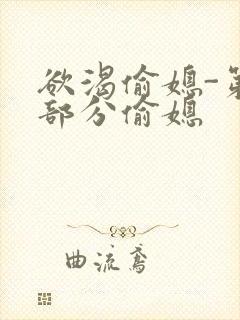 欲渴偷媳-第
部分偷媳
曲流鸢